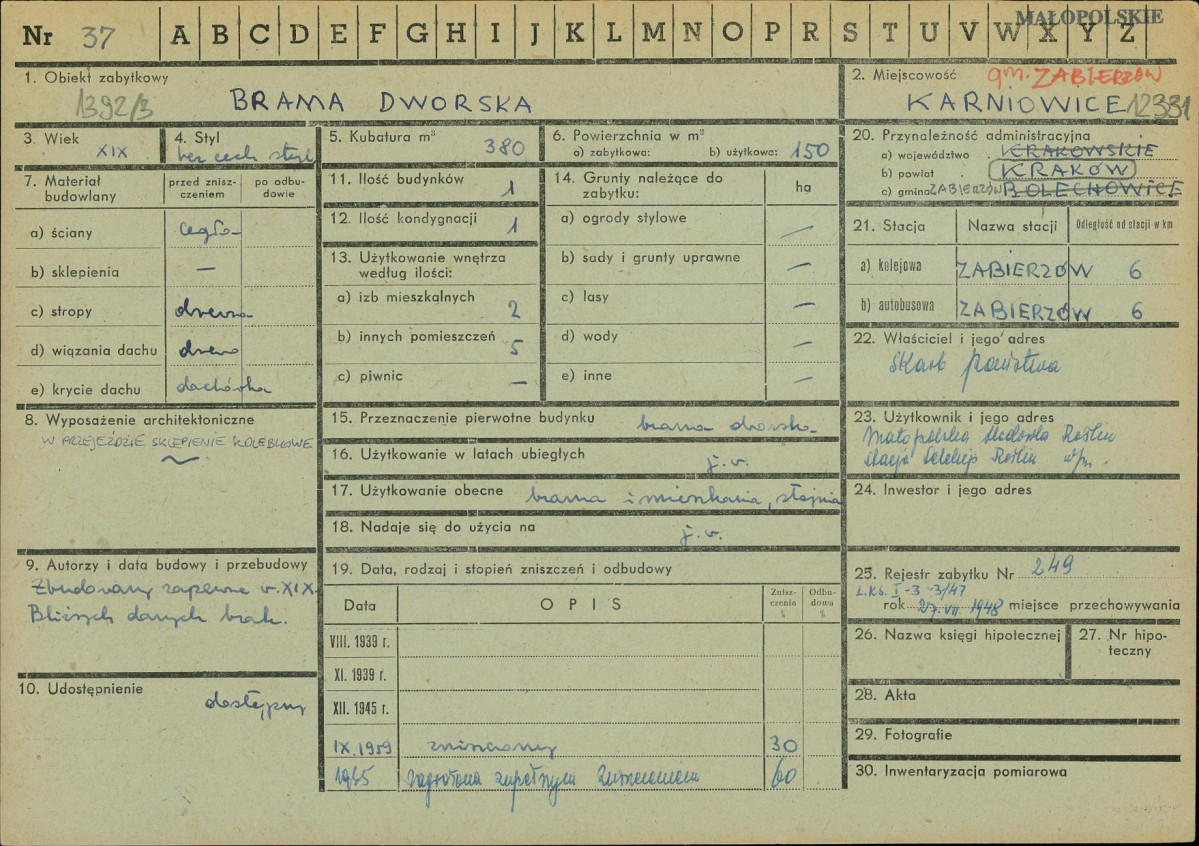 MAŁOPOLSKIE
Nr 37 A B C D E F G H I J K L M N O P R S T U V W X Y Z
1. Obiekt zabytkowy
1392/3 BRAMA DWORSKA
2. Miejscowość gm. ZABIERZÓW
KARNIOWICE 12331
3. Wiek
XIX
4. Styl
bez cech styl
5. Kubatura m³ 380
6. Powierzchnia w m²
a) zabytkowa: b) użytkowa: 150
7. Materiał budowlany
przed zniszczeniem
po odbudowie
a) ściany cegła
b) sklepienia —
c) stropy drewna
d) wiązania dachu drewno
e) krycie dachu dachówka
8. Wyposażenie architektoniczne
W PRZEJEŹDZIE SKLEPIENIE KOLEBKOWE
9. Autorzy i data budowy i przebudowy
Zbudowany zapewne w XIX.
Bliższych danych brak.
10. Udostępnienie
dostępny
11. Ilość budynków 1
12. Ilość kondygnacji 1
13. Użytkowanie wnętrza według ilości:
a) izb mieszkalnych 2
b) innych pomieszczeń 5
c) piwnic —
14. Grunty należące do zabytku: ha
a) ogrody stylowe —
b) sady i grunty uprawne —
c) lasy —
d) wody —
e) inne —
15. Przeznaczenie pierwotne budynku brama dworska
16. Użytkowanie w latach ubiegłych j.w.
17. Użytkowanie obecne brama i mieszkania, stajnia
18. Nadaje się do użycia na j.w.
19. Data, rodzaj i stopień zniszczeń i odbudowy
Data OPIS Zniszczenia % Odbudowa %
VIII. 1939 r.
XI. 1939 r.
XII. 1945 r.
IX. 1959 zniszczony 30
1965 zagrożona zupełnym zniszczeniem 60
20. Przynależność administracyjna
a) województwo KRAKOWSKIE
b) powiat KRAKÓW
c) gmina ZABIERZÓW BOLECHOWICE
21. Stacja Nazwa stacji Odległość od stacji w km
a) kolejowa ZABIERZÓW 6
b) autobusowa ZABIERZÓW 6
22. Właściciel i jego adres
Skarb państwa
23. Użytkownik i jego adres
Małopolska Hodowla Roślin
Stacja Selekcji Roślin w/m.
24. Inwestor i jego adres
25. Rejestr zabytku Nr 249
L.KS. I-3-3/47
rok 27.VII.1948 miejsce przechowywania
26. Nazwa księgi hipotecznej
27. Nr hipoteczny
28. Akta
29. Fotografie
30. Inwentaryzacja pomiarowa